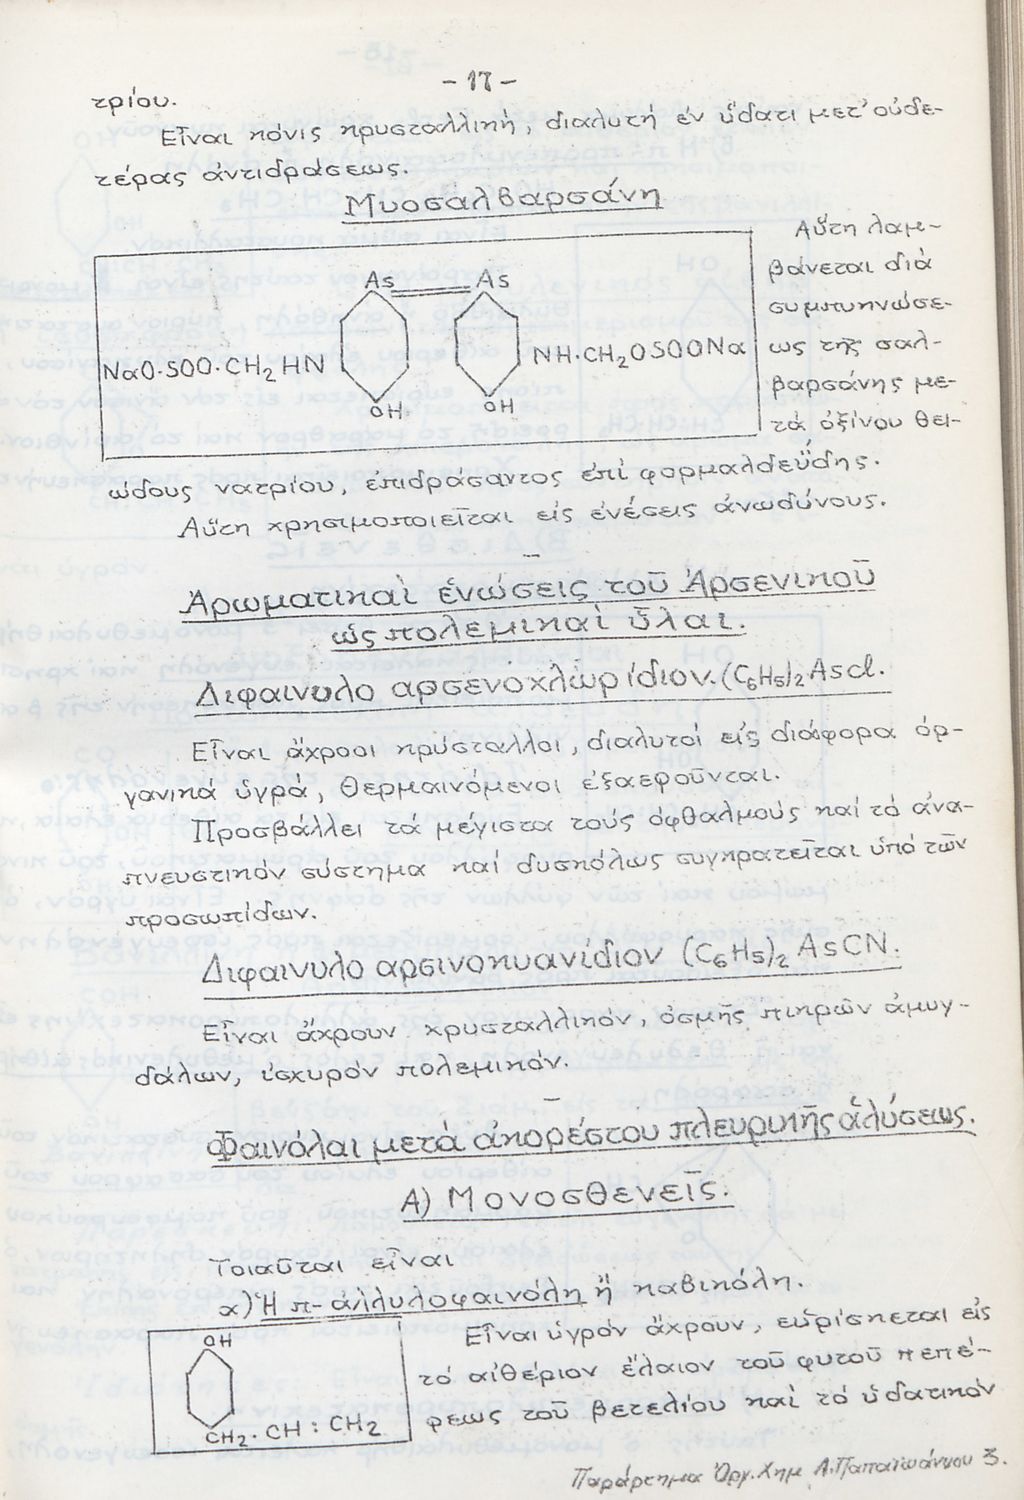 - 17 -
τρίου.
Εἶναι κόνις κρυσταλλική, διαλυτή ἐν ὕδατι μετ' οὐδε-
τέρας ἀντιδράσεως.
Μυοσαλβαρσάνη
As As
NaO·SOO·CH2 HN NH·CH2OSOONa
OH OH
Αὕτη λαμ-
βάνεται διά
συμπυκνώσε-
ως τῆς σαλ-
βαρσάνης με-
τά ὀξίνου θει-
ώδους νατρίου, ἐπιδράσαντος ἐπί φορμαλδεΰδης.
Αὕτη χρησιμοποιεῖται εἰς ἐνέσεις ἀνωδύνους.
Ἀρωματικαί ἑνώσεις τοῦ Ἀρσενικοῦ
ὡς πολεμικαί ὗλαι.
Διφαινυλο αρσενοχλωρίδιον. (C6H5)2 Ascl.
Εἶναι ἄχροοι κρύσταλλοι, διαλυτοί εἰς διάφορα ὀρ-
γανικά ὑγρά, θερμαινόμενοι ἐξαεροῦνται.
Προσβάλλει τά μέγιστα τούς οφθαλμούς καί τό ἀνα-
πνευστικόν σύστημα καί δυσκόλως συγκρατεῖται ὑπό τῶν
προσωπίδων.
Διφαινυλο αρσινοκυανίδιον (C6H5)2 AsCN.
Εἶναι ἄχρουν χρυσταλλικόν, ὀσμῆς πικρῶν ἀμυγ-
δάλων, ἰσχυρόν πολεμικόν.
Φαινόλαι μετά ἀκορέστου πλευρικῆς ἁλύσεως.
Α) Μονοσθενεῖς.
Τοιαῦται εἶναι
α) Ἡ π- ἀλλυλοφαινόλη ἤ καβικόλη.
OH
CH2·CH : CH2
Εἶναι ὑγρόν ἄχρουν, εὑρίσκεται εἰς
τό αἰθέριον ἔλαιον τοῦ φυτοῦ πεπέ-
ρεως τοῦ βετελίου καί τό ὑδατικόν
Παράρτημα Ὀργ. Χημ Α. Παπαϊωάννου 3.